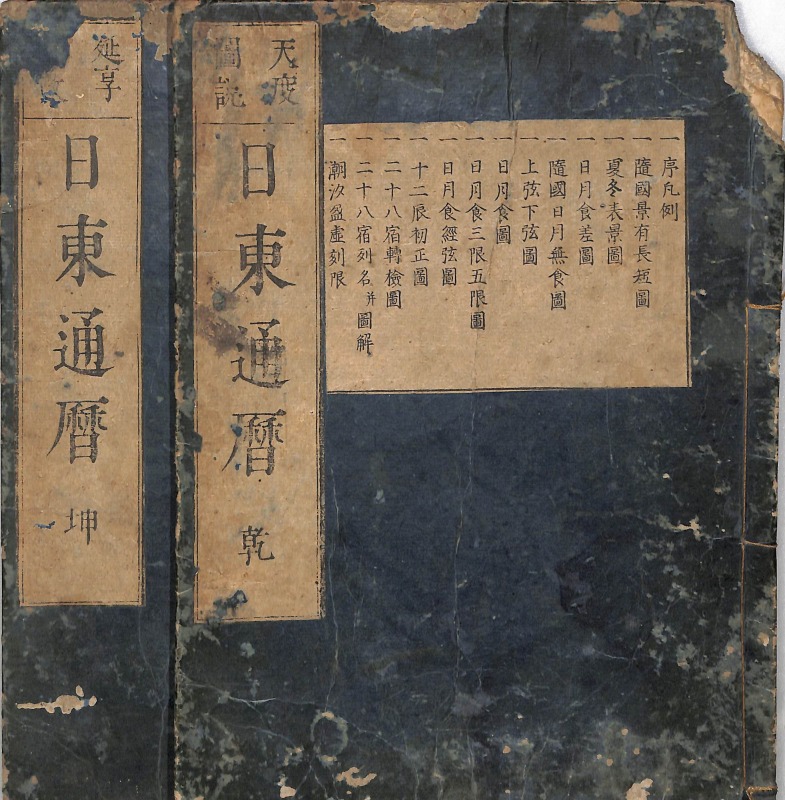 一 序凡例
一 隨國景有長短圖
一 夏冬表景圖
一 日月食差圖
一 隨國日月無食圖
一 上弦下弦圖
一 日月食圖
一 日月食三限五限圖
一 日月食經弦圖
一 十二辰初正圖
一 二十八宿轉檢圖
一 二十八宿列名并圖解
一 潮汐盈虛刻限
天度
圖説
日東通曆 乾
延享
日東通曆 坤